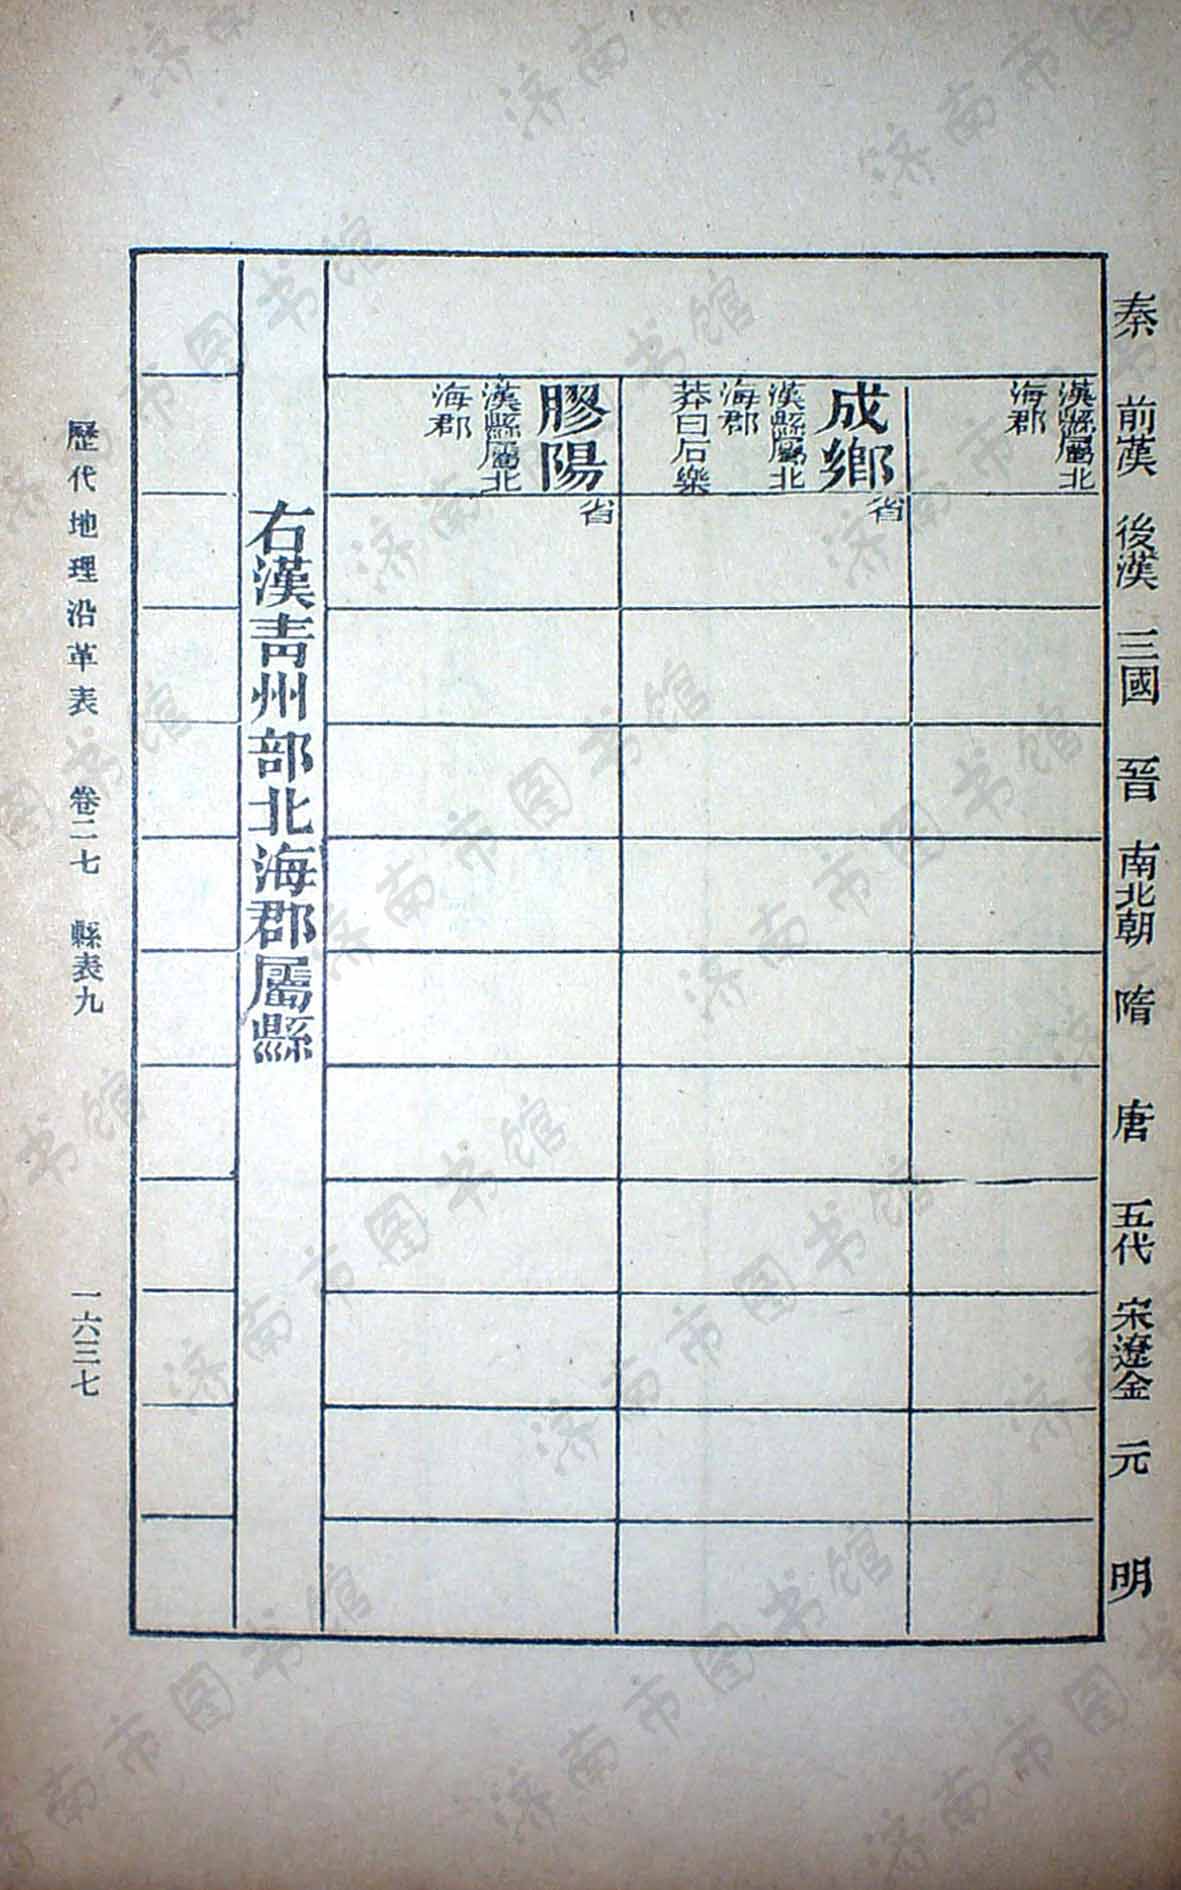 秦
前漢
後漢
三國
晉
南北朝
隋
唐
五代
宋遼金
元
明
漢縣屬北
海郡
成鄉
漢縣屬北
海郡
莽曰石樂
省
膠陽
漢縣屬北
海郡
省
右漢青州部北海郡屬縣
歷代地理沿革表 卷二七 縣表九 一六三七
济南市图书馆